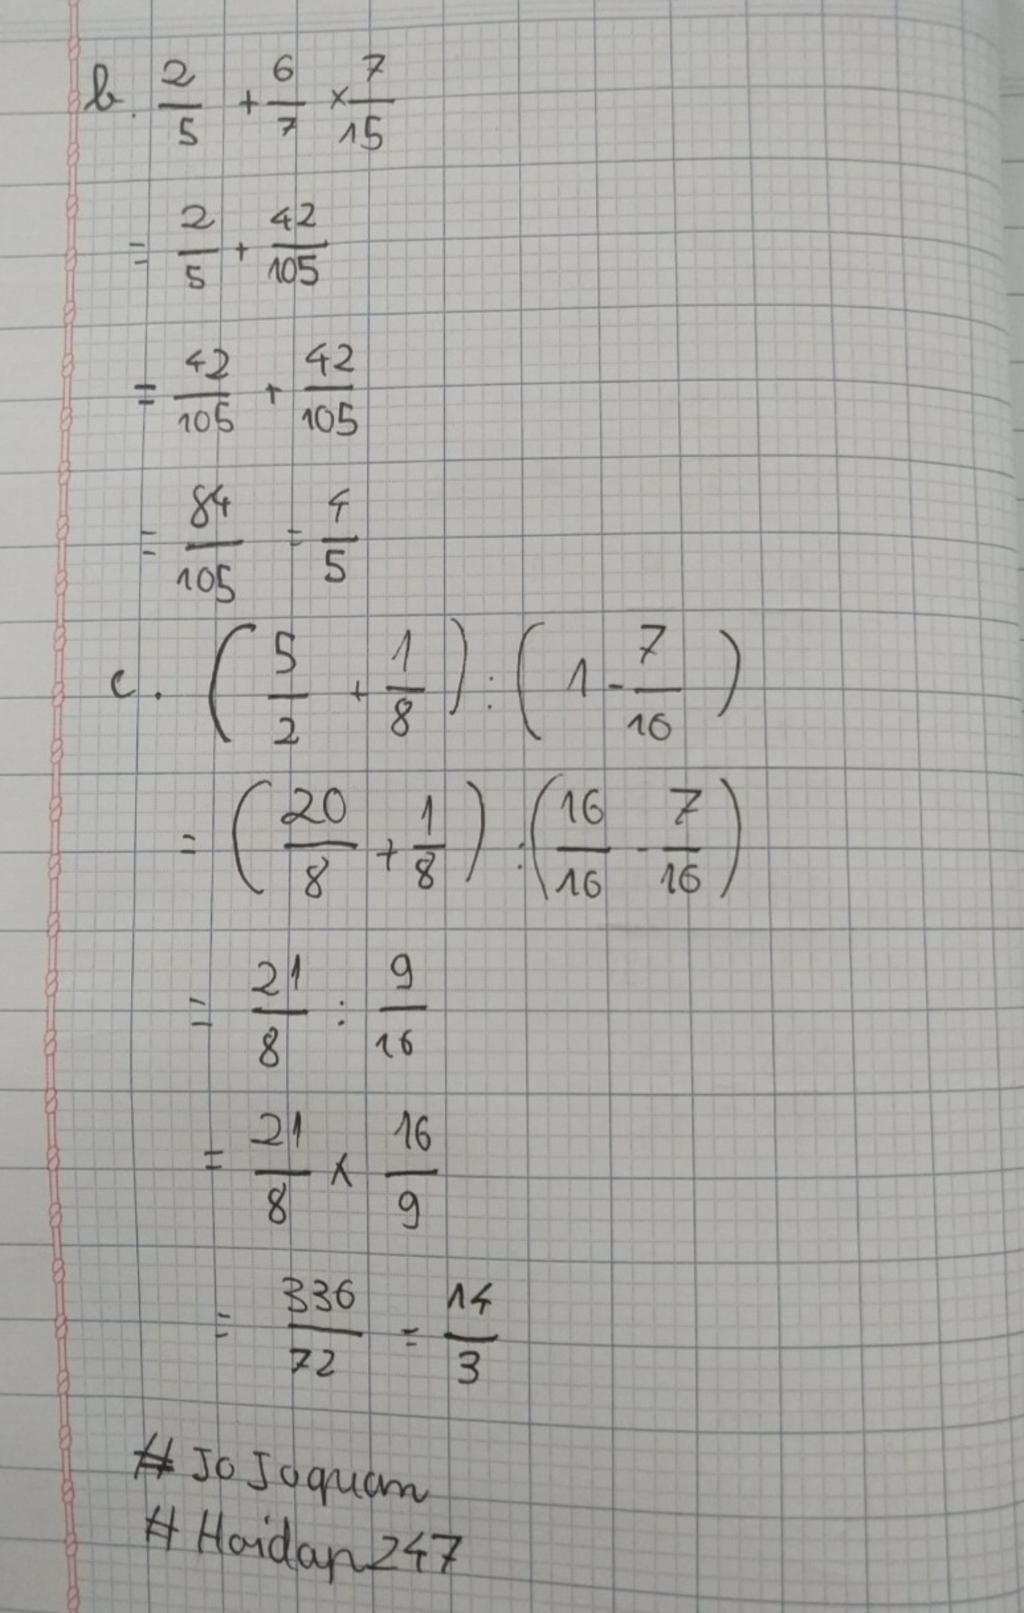 b. 2/5 + 6/7 × 7/15
= 2/5 + 42/105
= 42/105 + 42/105
= 84/105 = 4/5
c. (5/2 + 1/8) : (1 - 7/16)
= (20/8 + 1/8) : (16/16 - 7/16)
= 21/8 : 9/16
= 21/8 × 16/9
= 336/72 = 14/3
# JoJoquam
# Hoidap247